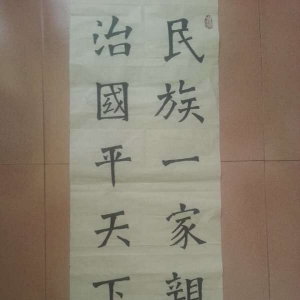 民族一家親
治國平天下